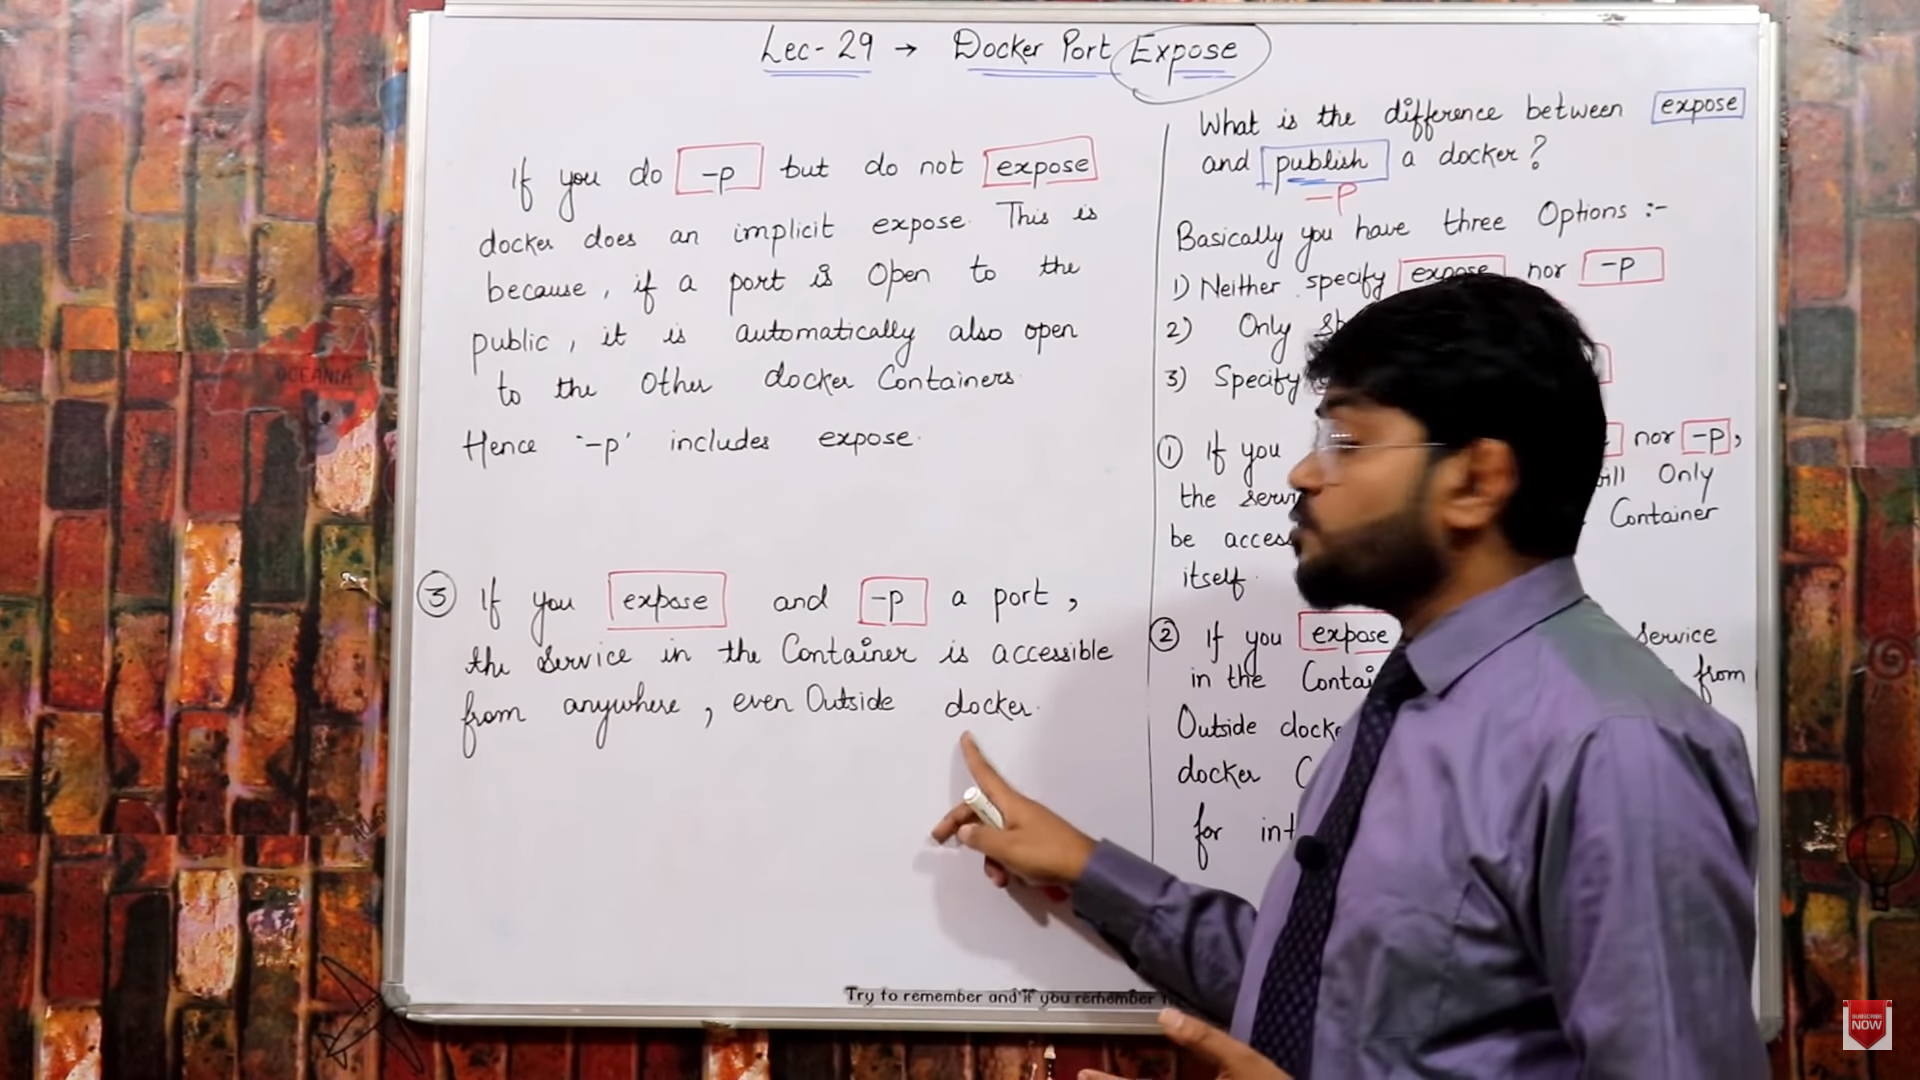 Lec-29 → Docker Port Expose
If you do -p but do not expose
docker does an implicit expose. This is
because, if a port is Open to the
public, it is automatically also open
to the Other docker Containers.
Hence '-p' includes expose.
③ If you expose and -p a port,
the Service in the Container is accessible
from anywhere, even Outside docker.
What is the difference between expose
and publish a docker?
-P
Basically you have three Options :-
1) Neither specify expose nor -p
2) Only
3) Specify
① If you nor -p,
the Only
be Container
itself.
② If you expose Service
in the from
Outside
docker
for
Try to remember and if you remember
OCEANIA
SUBSCRIBE
NOW